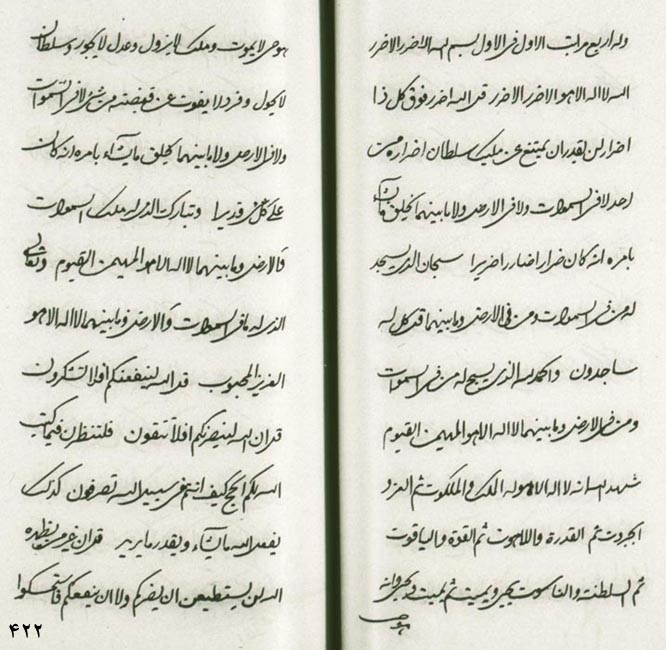 وله اربع مراتب الاول فی الاول بسم الله الاضرر الاضرر
الله لا اله الا هو الاضرر الاضرر قل الله اضرر فوق کل ذا
اضرار لن یقدر ان یمتنع عن ملیک سلطان اضراره من
احد لا فی السموات ولا فی الارض ولا ما بینهما یخلق ما یشآء
بامره انه کان ضرارا ضاررا ضریرا سبحان الذی یسجد
له من فی السموات ومن فی الارض وما بینهما قل کل له
ساجدون والحمد لله الذی یسبح له من فی السموات
ومن فی الارض وما بینهما لا اله الا هو المهیمن القیوم
شهد الله انه لا اله الا هو له الملک والملکوت ثم العز و
الجبروت ثم القدرة واللاهوت ثم القوة والیاقوت
ثم السلطنة والناسوت یحیی ویمیت ثم یمیت ویحیی وانه
هو حی
هو حی لا یموت وملک لا یزول وعدل لا یجور وسلطان
لا یحول وفرد لا یفوت عن قبضته من شئ لا فی السموات
ولا فی الارض ولا ما بینهما یخلق ما یشآء بامره انه کان
علی کل شئ قدیرا وتبارک الذی له ملک السموات
والارض وما بینهما لا اله الا هو المهیمن القیوم وتعالی
الذی له ما فی السموات والارض وما بینهما لا اله الا هو
العزیز المحبوب قل الله لینفعنکم افلا تشکرون
قل ان الله لیضرنکم افلا تتقون فلتنظرن فیما کتب
الله لکم الحج کیف انتم فی سبیل الله تصرفون کذلک
یفعل الله ما یشآء ویقدر ما یرید قل ان غیر من یظهره
الله لن یستطیعن ان یضرکم ولا ان ینفعکم فاستمسکوا
۴۲۲